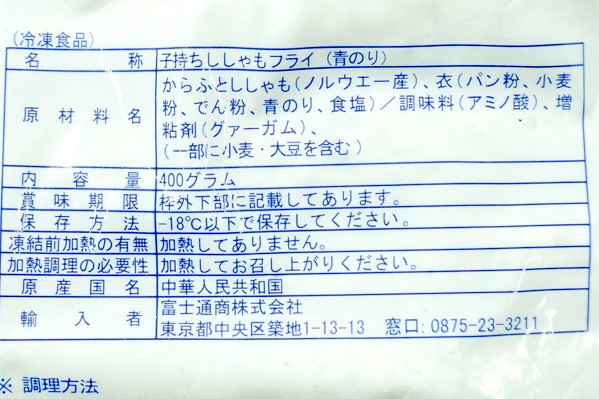 (冷凍食品)
名称 子持ちししゃもフライ (青のり)
原材料名 からふとししゃも(ノルウエー産)、衣(パン粉、小麦
粉、でん粉、青のり、食塩)／調味料(アミノ酸)、増
粘剤(グァーガム)、
(一部に小麦・大豆を含む)
内容量 400グラム
賞味期限 枠外下部に記載してあります。
保存方法 -18℃以下で保存してください。
凍結前加熱の有無 加熱してありません。
加熱調理の必要性 加熱してお召し上がりください。
原産国名 中華人民共和国
輸入者 富士通商株式会社
東京都中央区築地1-13-13 窓口: 0875-23-3211
※ 調理方法